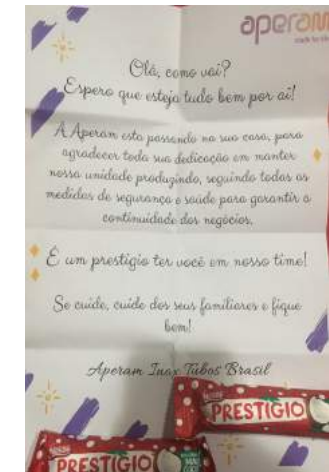 aperam
Olá, como vai?
Espero que esteja tudo bem por aí!
A Aperam esta passando na sua casa, para
agradecer toda sua dedicação em manter
nossa unidade produzindo, seguindo todas as
medidas de segurança e saúde para garantir a
continuidade dos negócios.
É um prestígio ter você em nosso time!
Se cuide, cuide dos seus familiares e fique
bem!
Aperam Inox Tubos Brasil
Nestlé
PRESTÍGIO
Nestlé
PRESTÍGIO